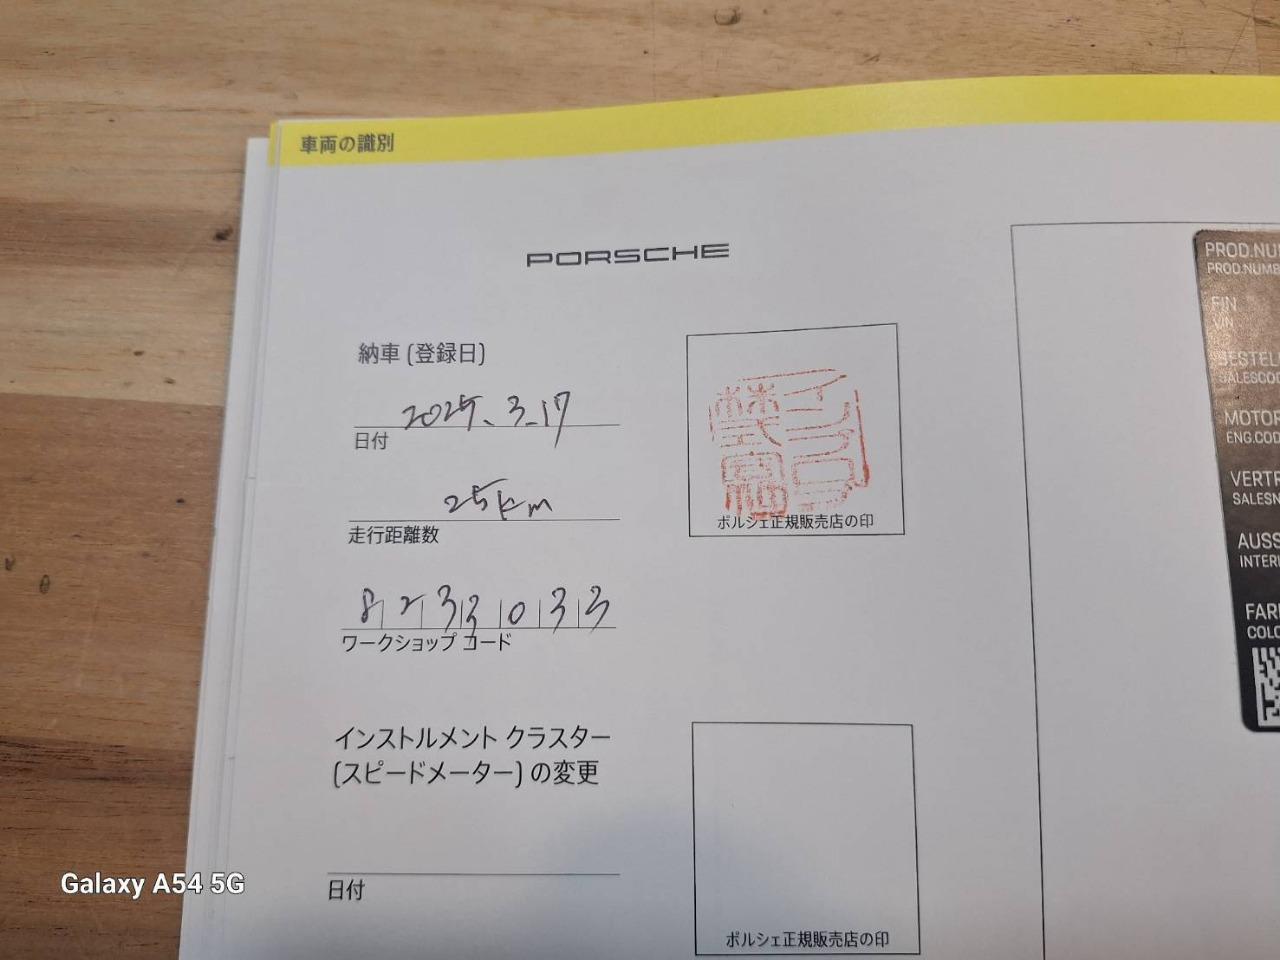 車両の識別
PORSCHE
納車 (登録日)
2025.3.17
日付
25km
走行距離数
8 2 3 3 0 3 3
ワークショップ コード
ポルシェ正規販売店の印
インストルメント クラスター
(スピードメーター) の変更
日付
ポルシェ正規販売店の印
PROD.NU
PROD.NUMB
FIN
VIN
BESTEL
SALESCOD
MOTOR
ENG.COD
VERTR
SALESN
AUSS
INTERI
FAR
COLO
Galaxy A54 5G